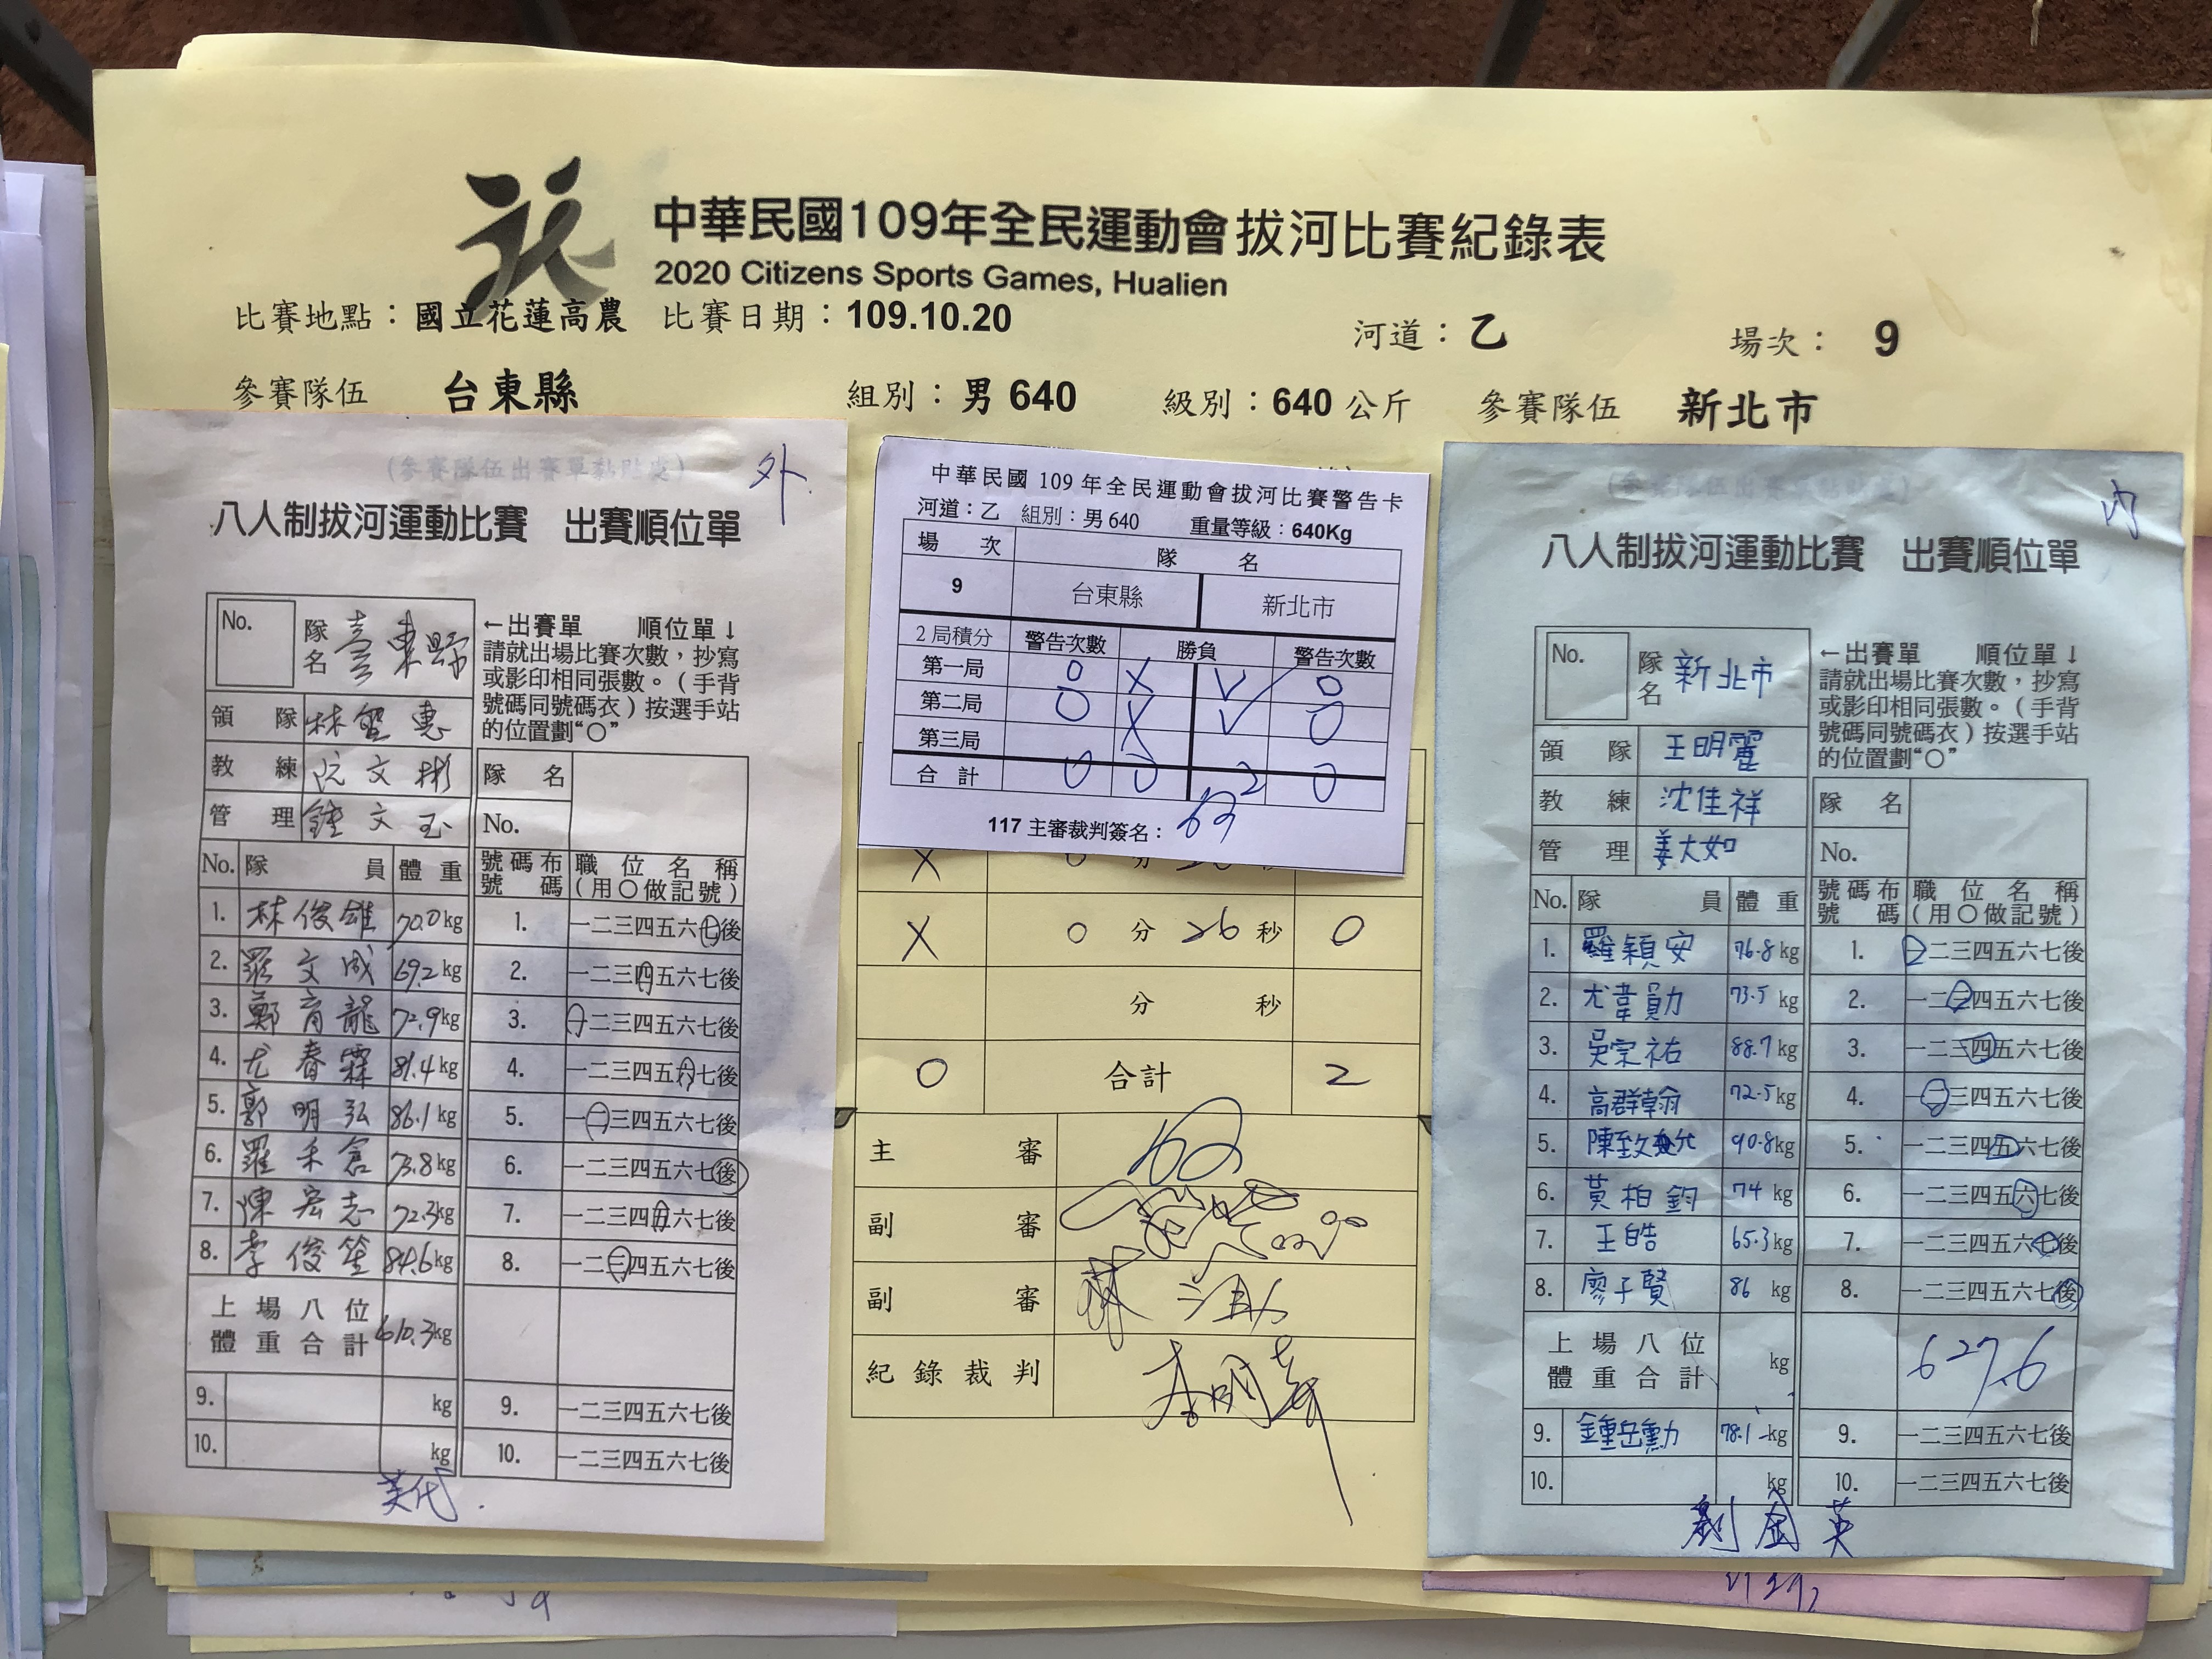 中華民國109年全民運動會拔河比賽紀錄表
2020 Citizens Sports Games, Hualien
比賽地點：國立花蓮高農 比賽日期：109.10.20 河道：乙 場次： 9
參賽隊伍 台東縣 組別：男 640 級別：640 公斤 參賽隊伍 新北市
(參賽隊伍出賽單黏貼處)
外
八人制拔河運動比賽 出賽順位單
No. 隊名 臺東縣
←出賽單 順位單↓
請就出場比賽次數，抄寫
或影印相同張數。（手背
號碼同號碼衣）按選手站
的位置劃“○”
領 隊 林聖惠
教 練 阮文彬
管 理 鍾文玉
隊 名
No.
No. 隊 員 體 重 號碼布號碼 職位名稱(用○做記號)
1. 林俊雄 70.0kg 1. 一二三四五六七後
2. 羅文成 69.2kg 2. 一二三四五六七後
3. 鄭育龍 72.9kg 3. 一二三四五六七後
4. 尤春霖 81.4kg 4. 一二三四五六七後
5. 郭明弘 86.1kg 5. 一二三四五六七後
6. 羅禾倉 73.8kg 6. 一二三四五六七後
7. 陳宏志 72.3kg 7. 一二三四五六七後
8. 李俊笙 84.6kg 8. 一二三四五六七後
上場八位
體重合計 610.3kg
9. kg 9. 一二三四五六七後
10. kg 10. 一二三四五六七後
美代
中華民國 109 年全民運動會拔河比賽警告卡
河道：乙 組別：男 640 重量等級：640Kg
場 次 隊 名
9 台東縣 新北市
2 局積分 警告次數 勝負 警告次數
第一局 0 X V 0
第二局 0 X V 0
第三局
合 計 0 0 2 0
117 主審裁判簽名：
X 0 分 秒
X 0 分 26 秒 0
分 秒
0 合計 2
主 審
副 審
副 審
紀錄裁判
內
八人制拔河運動比賽 出賽順位單
No. 隊名 新北市
←出賽單 順位單↓
請就出場比賽次數，抄寫
或影印相同張數。（手背
號碼同號碼衣）按選手站
的位置劃“○”
領 隊 王明麗
教 練 沈佳祥
管 理 姜大如
隊 名
No.
No. 隊 員 體 重 號碼布號碼 職位名稱(用○做記號)
1. 羅穎安 76.8kg 1. 一二三四五六七後
2. 尤韋勛 73.5 kg 2. 一二三四五六七後
3. 吳宗祐 88.7kg 3. 一二三四五六七後
4. 高群翰 72.5kg 4. 一二三四五六七後
5. 陳致允 90.8kg 5. 一二三四五六七後
6. 黃柏鈞 74 kg 6. 一二三四五六七後
7. 王皓 65.3kg 7. 一二三四五六七後
8. 廖子賢 86 kg 8. 一二三四五六七後
上場八位
體重合計 kg 627.6
9. 鍾岳勳 78.1 kg 9. 一二三四五六七後
10. kg 10. 一二三四五六七後
劉金英